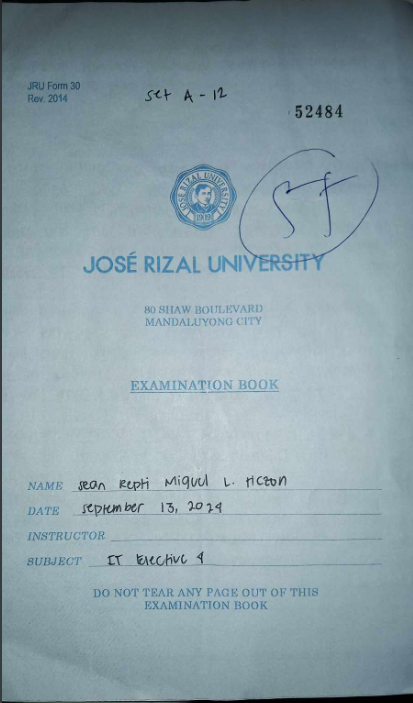 JRU Form 30
Rev. 2014
Set A - 12
52484
JOSÉ RIZAL UNIVERSITY
1919
JOSÉ RIZAL UNIVERSITY
80 SHAW BOULEVARD
MANDALUYONG CITY
EXAMINATION BOOK
NAME Sean Repti Miguel L. Ticzon
DATE September 13, 2024
INSTRUCTOR
SUBJECT IT Elective 4
DO NOT TEAR ANY PAGE OUT OF THIS
EXAMINATION BOOK